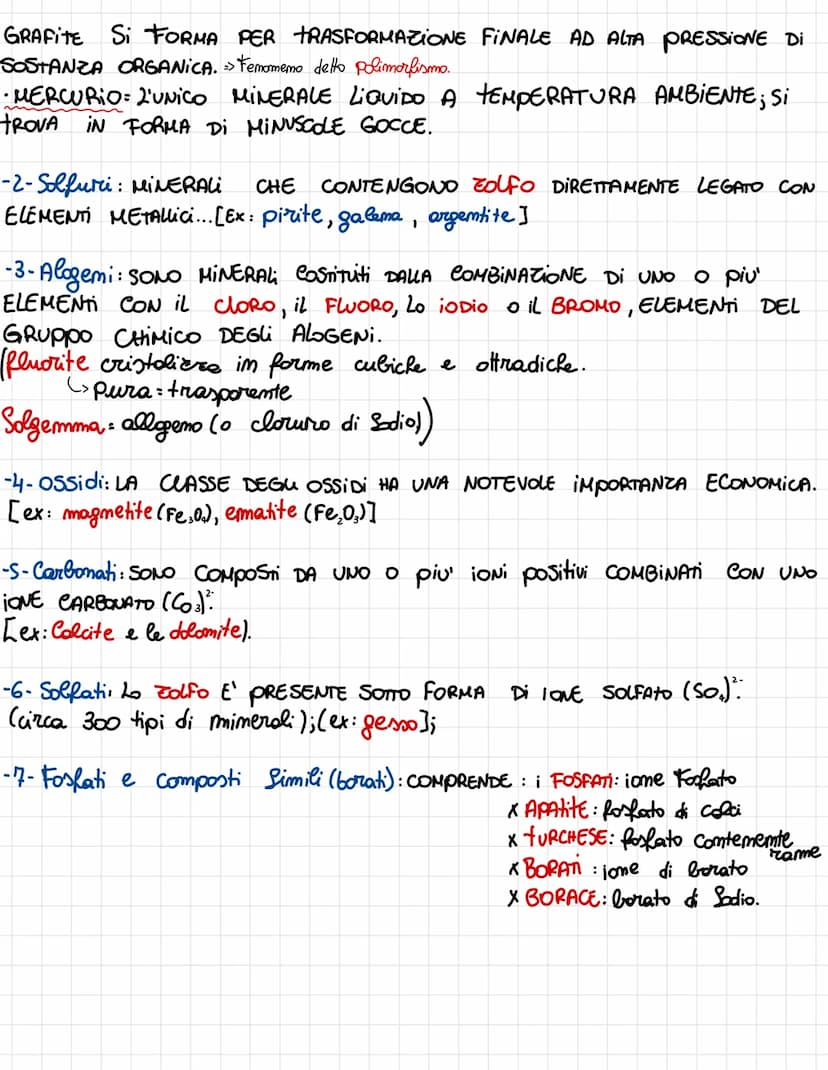 GRAFITE SI FORMA PER TRASFORMAZIONE FINALE AD ALTA PRESSIONE DI
SOSTANZA ORGANICA. => Fenomeno detto polimorfismo.
·MERCURIO= L'UNICO MINERALE LIQUIDO A TEMPERATURA AMBIENTE; SI
TROVA IN FORMA DI MINUSCOLE GOCCE.
-2- Solfuri: MINERALI CHE CONTENGONO ZOLFO DIRETTAMENTE LEGATO CON
ELEMENTI METALLICI...[Ex: pirite, galena, argentite]
-3- Alogeni: SONO MINERALI COSTITUITI DALLA COMBINAZIONE DI UNO O PIU'
ELEMENTI CON IL CLORO, IL FLUORO, LO IODIO O IL BROMO, ELEMENTI DEL
GRUPPO CHIMICO DEGLI ALOGENI.
(fluorite cristallizza in forme cubiche e ottradiche.
↳ pura = trasparente
Solgemma = allogeno (o cloruro di Sodio))
-4- OSSIDI: LA CLASSE DEGLI OSSIDI HA UNA NOTEVOLE IMPORTANZA ECONOMICA.
[ex: magnetite (Fe₃O₄), ematite (Fe₂O₃)]
-5- Carbonati: SONO COMPOSTI DA UNO O PIU' IONI POSITIVI COMBINATI CON UNO
IONE CARBONATO (CO₃)²⁻.
[ex: Calcite e le dolomite).
-6- Solfati: LO ZOLFO E' PRESENTE SOTTO FORMA DI IONE SOLFATO (SO₄)²⁻.
(circa 300 tipi di minerali);(ex: gesso];
-7- Fosfati e Composti Simili (borati): COMPRENDE: i FOSFATI: ione Fosfato
x APATITE: fosfato di calci
x TURCHESE: fosfato contenente rame
x BORATI: ione di borato
x BORACE: borato di Sodio.